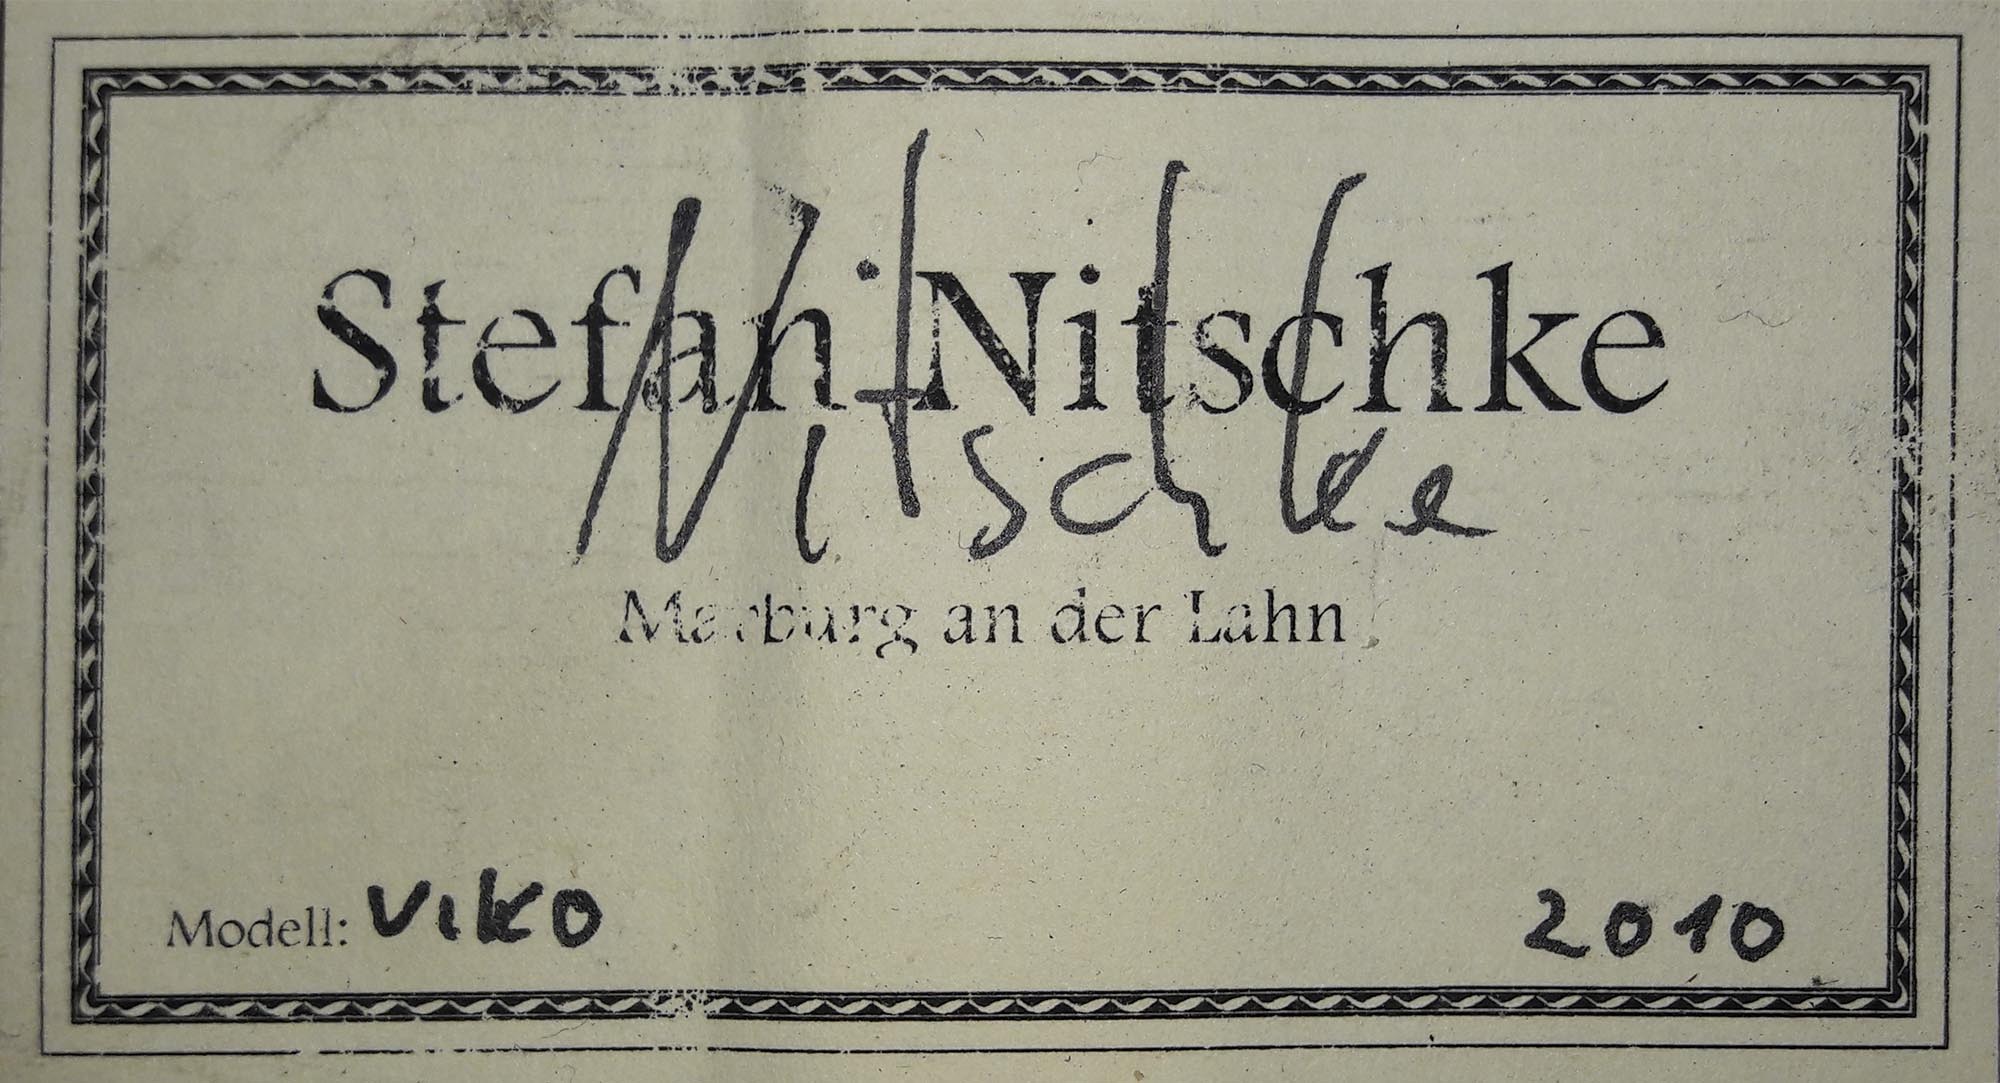 Stefan Nitschke
Nitschke
Marburg an der Lahn
Modell: VIKO
2010